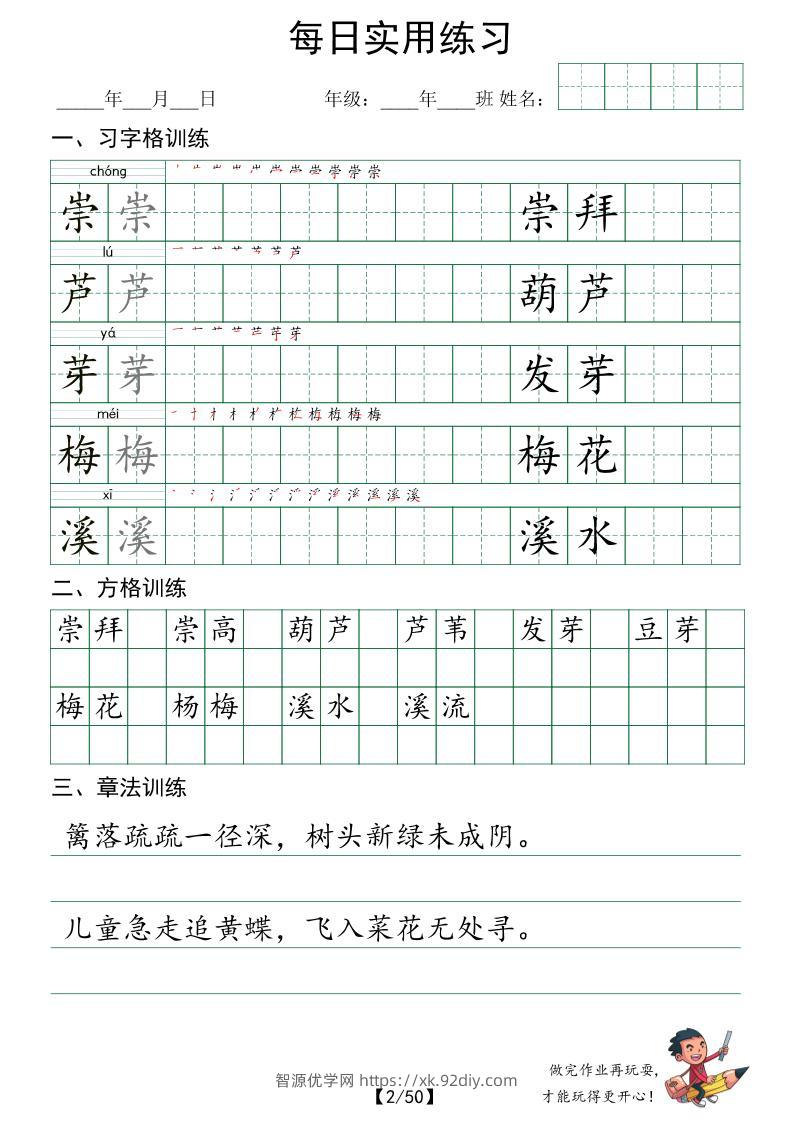 每日实用练习
_____年___月___日 年级：____年____班 姓名：
一、习字格训练
chóng
崇 崇 崇 拜
lú
芦 芦 葫 芦
yá
芽 芽 发 芽
méi
梅 梅 梅 花
xī
溪 溪 溪 水
二、方格训练
崇 拜 崇 高 葫 芦 芦 苇 发 芽 豆 芽
梅 花 杨 梅 溪 水 溪 流
三、章法训练
篱落疏疏一径深，树头新绿未成阴。
儿童急走追黄蝶，飞入菜花无处寻。
做完作业再玩耍，
才能玩得更开心！
智源优学网 https://xk.92diy.com
【2/50】